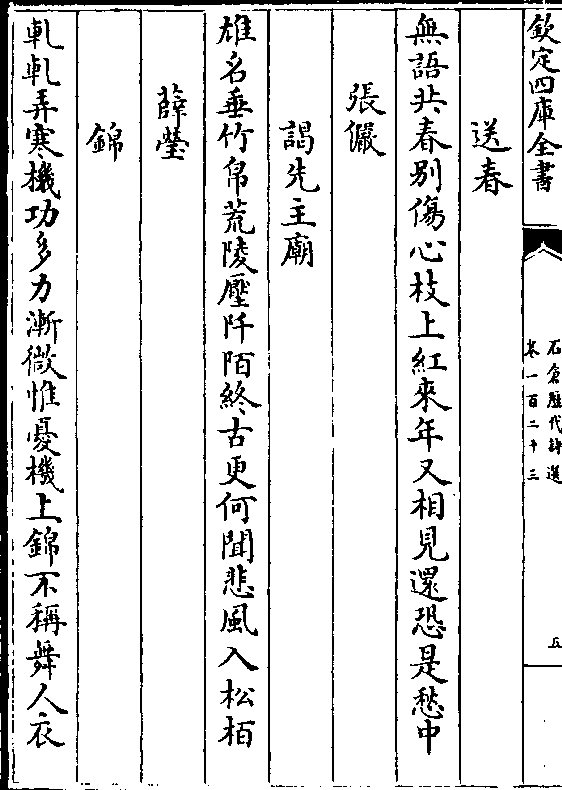 欽定四庫全書
石倉歷代詩選
卷一百二十三
五
送春
無語共春別傷心枝上紅來年又相見還恐是愁中
張儼
謁先主廟
雄名垂竹帛荒陵壓阡陌終古更何聞悲風入松栢
薛瑩
錦
軋軋弄寒機功多力漸微惟憂機上錦不稱舞人衣